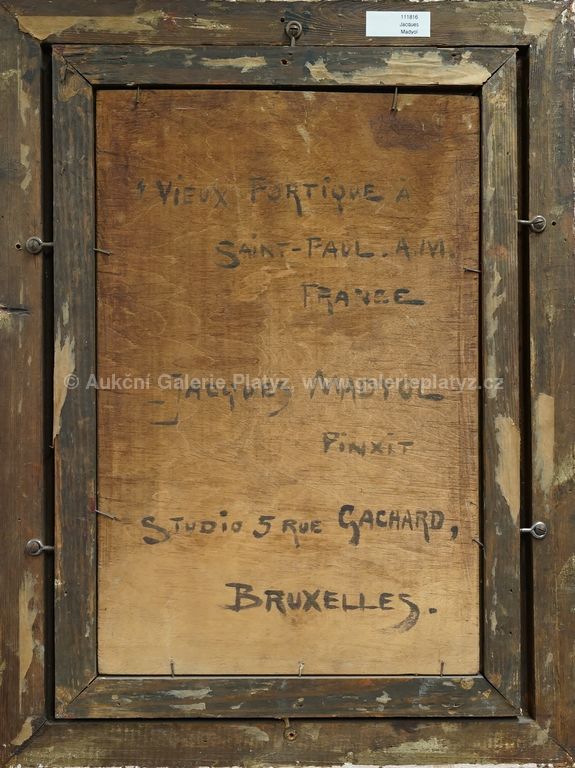 111816
Jacques
Madyol
" VIEUX PORTIQUE À
SAINT-PAUL. A.M.
FRANCE
© Aukční Galerie Platýz, www.galerieplatyz.cz
JACQUES MADYOL
PINXIT
STUDIO 5 RUE GACHARD,
BRUXELLES.